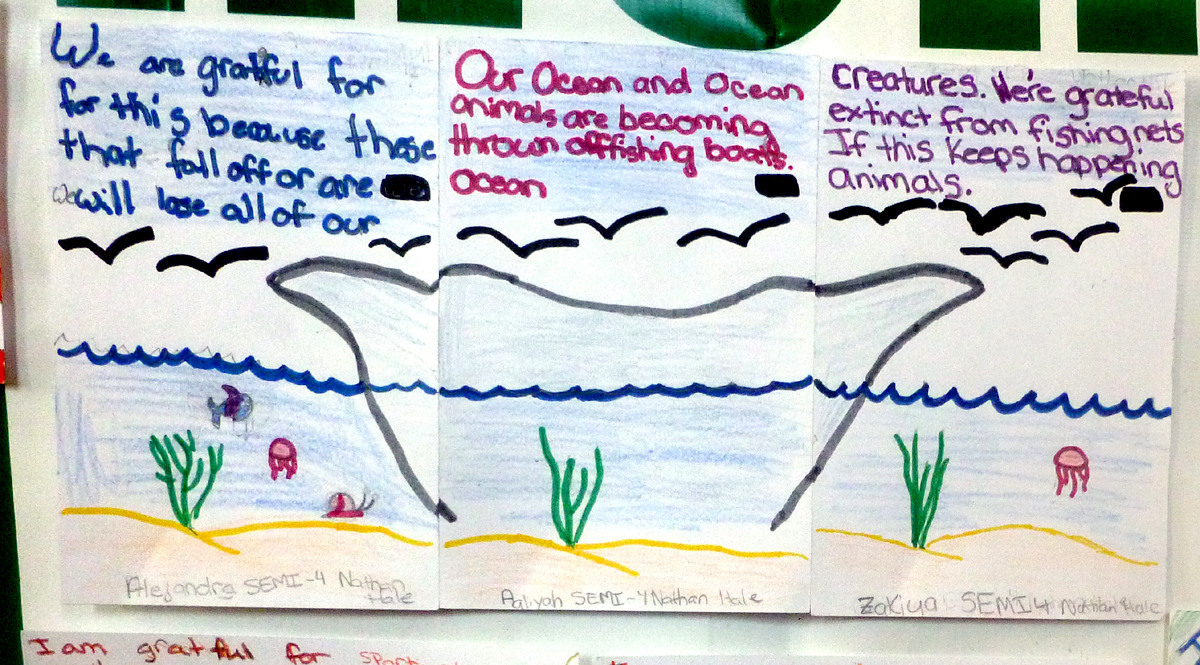 We are grateful for Our Ocean and Ocean creatures. We're grateful
for this because these animals are becoming extinct from fishing nets
that fall off or are thrown off fishing boats. If this keeps happening
We will lose all of our ocean animals.
Alejandra SEMI-4 Nathan Hale
Aaliyah SEMI-4 Nathan Hale
Zakiya SEMI4 Nathan Hale
I am gratful for